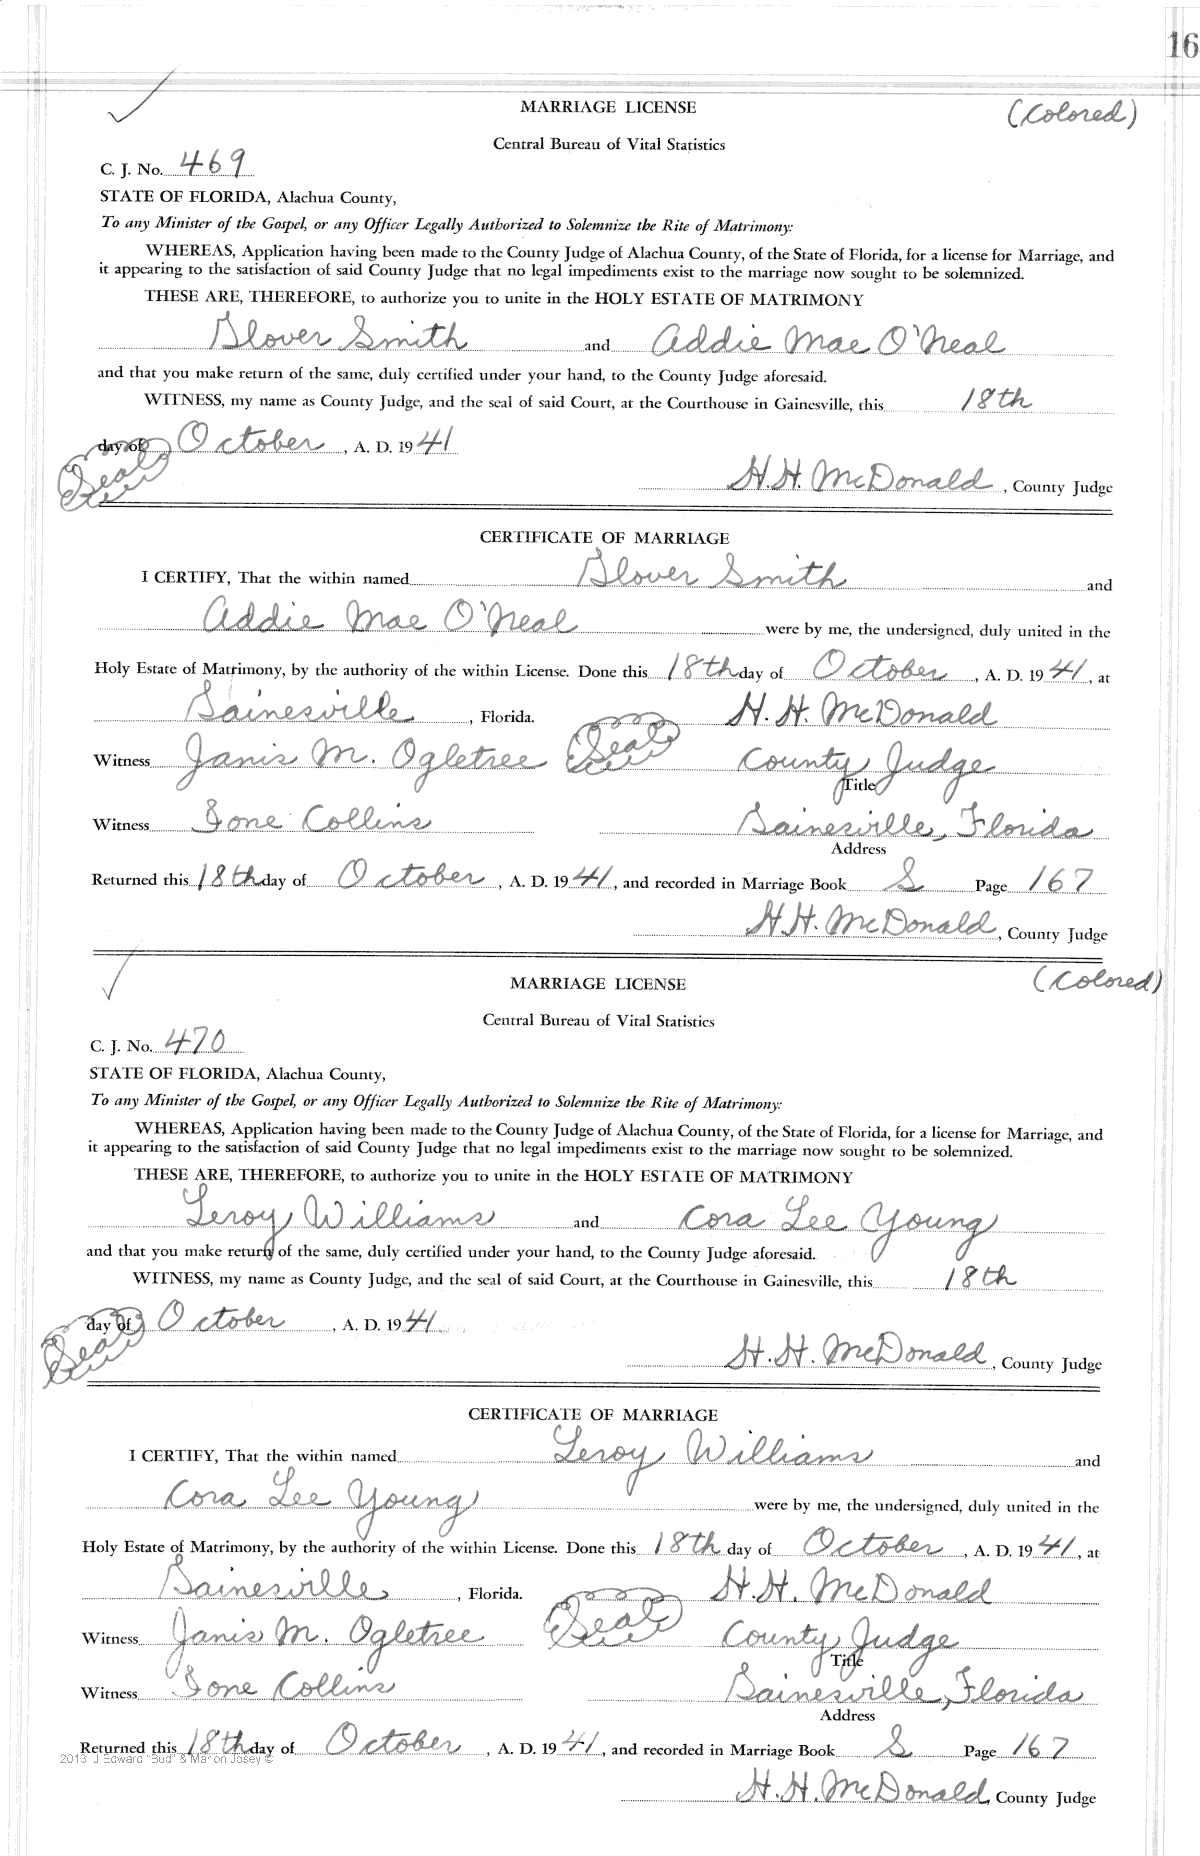 16
MARRIAGE LICENSE (Colored)
Central Bureau of Vital Statistics
C. J. No. 469
STATE OF FLORIDA, Alachua County,
To any Minister of the Gospel, or any Officer Legally Authorized to Solemnize the Rite of Matrimony:
WHEREAS, Application having been made to the County Judge of Alachua County, of the State of Florida, for a license for Marriage, and
it appearing to the satisfaction of said County Judge that no legal impediments exist to the marriage now sought to be solemnized.
THESE ARE, THEREFORE, to authorize you to unite in the HOLY ESTATE OF MATRIMONY
Glover Smith and Addie Mae O'Neal
and that you make return of the same, duly certified under your hand, to the County Judge aforesaid.
WITNESS, my name as County Judge, and the seal of said Court, at the Courthouse in Gainesville, this 18th
day of October, A. D. 1941
Seal
H.H. McDonald, County Judge
CERTIFICATE OF MARRIAGE
I CERTIFY, That the within named Glover Smith and
Addie Mae O'Neal were by me, the undersigned, duly united in the
Holy Estate of Matrimony, by the authority of the within License. Done this 18th day of October, A. D. 1941, at
Gainesville, Florida. H. H. McDonald
Witness Janis M. Ogletree Seal County Judge
Title
Witness Ione Collins Gainesville, Florida
Address
Returned this 18th day of October, A. D. 1941, and recorded in Marriage Book S Page 167
H.H. McDonald, County Judge
MARRIAGE LICENSE (Colored)
Central Bureau of Vital Statistics
C. J. No. 470
STATE OF FLORIDA, Alachua County,
To any Minister of the Gospel, or any Officer Legally Authorized to Solemnize the Rite of Matrimony:
WHEREAS, Application having been made to the County Judge of Alachua County, of the State of Florida, for a license for Marriage, and
it appearing to the satisfaction of said County Judge that no legal impediments exist to the marriage now sought to be solemnized.
THESE ARE, THEREFORE, to authorize you to unite in the HOLY ESTATE OF MATRIMONY
Leroy Williams and Cora Lee Young
and that you make return of the same, duly certified under your hand, to the County Judge aforesaid.
WITNESS, my name as County Judge, and the seal of said Court, at the Courthouse in Gainesville, this 18th
day of October, A. D. 1941
Seal
H. H. McDonald, County Judge
CERTIFICATE OF MARRIAGE
I CERTIFY, That the within named Leroy Williams and
Cora Lee Young were by me, the undersigned, duly united in the
Holy Estate of Matrimony, by the authority of the within License. Done this 18th day of October, A. D. 1941, at
Gainesville, Florida. H.H. McDonald
Witness Janis M. Ogletree Seal County Judge
Title
Witness Ione Collins Gainesville, Florida
Address
Returned this 18th day of October, A. D. 1941, and recorded in Marriage Book S Page 167
2013 J Edward "Bud" & Marion Josey ©
H.H. McDonald, County Judge